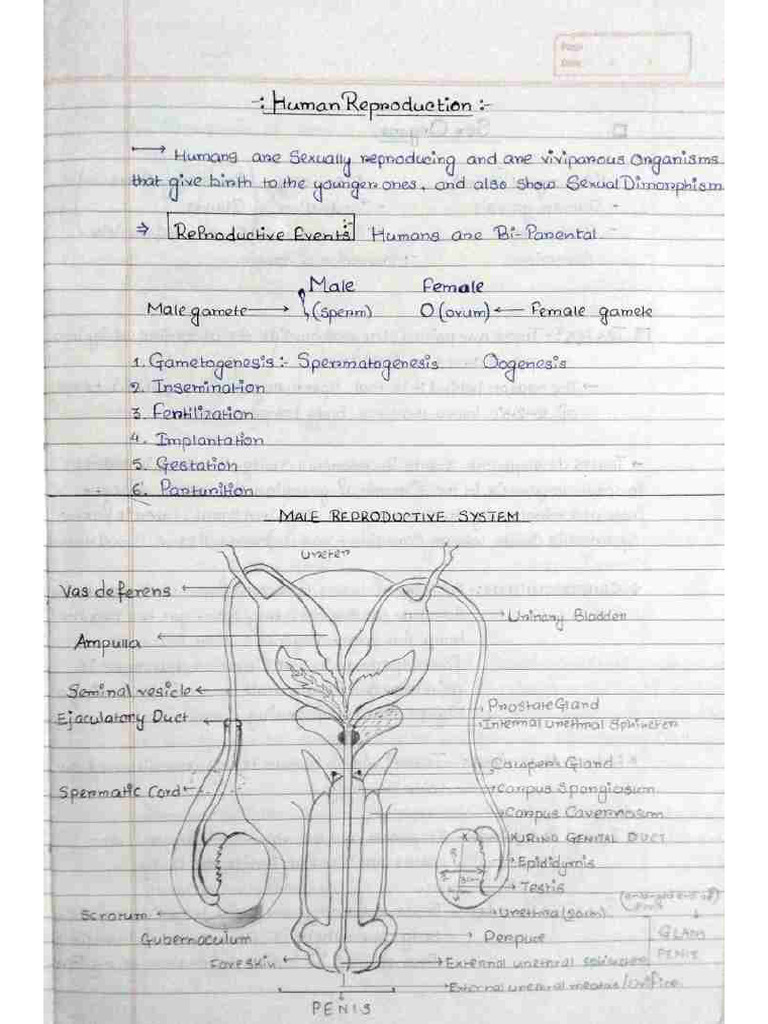 Page
Date
-: Human Reproduction :-
→ Humans are Sexually reproducing and are viviparous Organisms
that give birth to the younger ones, and also show Sexual Dimorphism
⇒ Reproductive Events: Humans are Bi-Parental
Male Female
Male gamete → (sperm) O (ovum) ← Female gamete
1. Gametogenesis :- Spermatogenesis Oogenesis
2. Insemination
3. Fertilization
4. Implantation
5. Gestation
6. Parturition
MALE REPRODUCTIVE SYSTEM
Ureter
Vas deferens
Urinary Bladder
Ampulla
Seminal vesicle
Prostate Gland
Ejaculatory Duct
Internal urethral Sphincter
Cowper's Gland
Spermatic Cord
Corpus Spongiosum
Corpus Cavernosum
GENITAL DUCT
Epididymis
Testis
Scrotum
Urethra (20cm)
(enlarged end of)
Penis
Gubernaculum
GLANS
PENIS
Foreskin
External urethral sphincter
External urethral meatus/orifice
PENIS